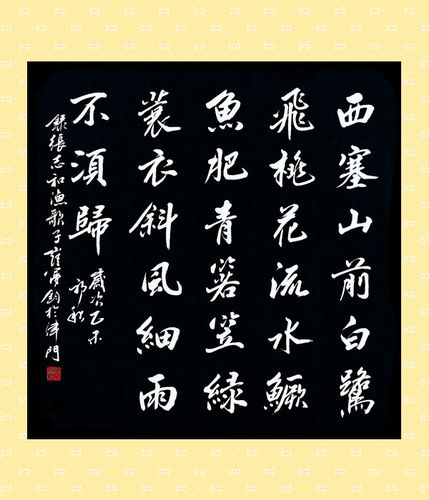 西塞山前白鷺
飛桃花流水鱖
魚肥青箬笠緑
蓑衣斜風細雨
不須歸
歲次乙未
初秋
錄張志和漁歌子崔鈞於津門